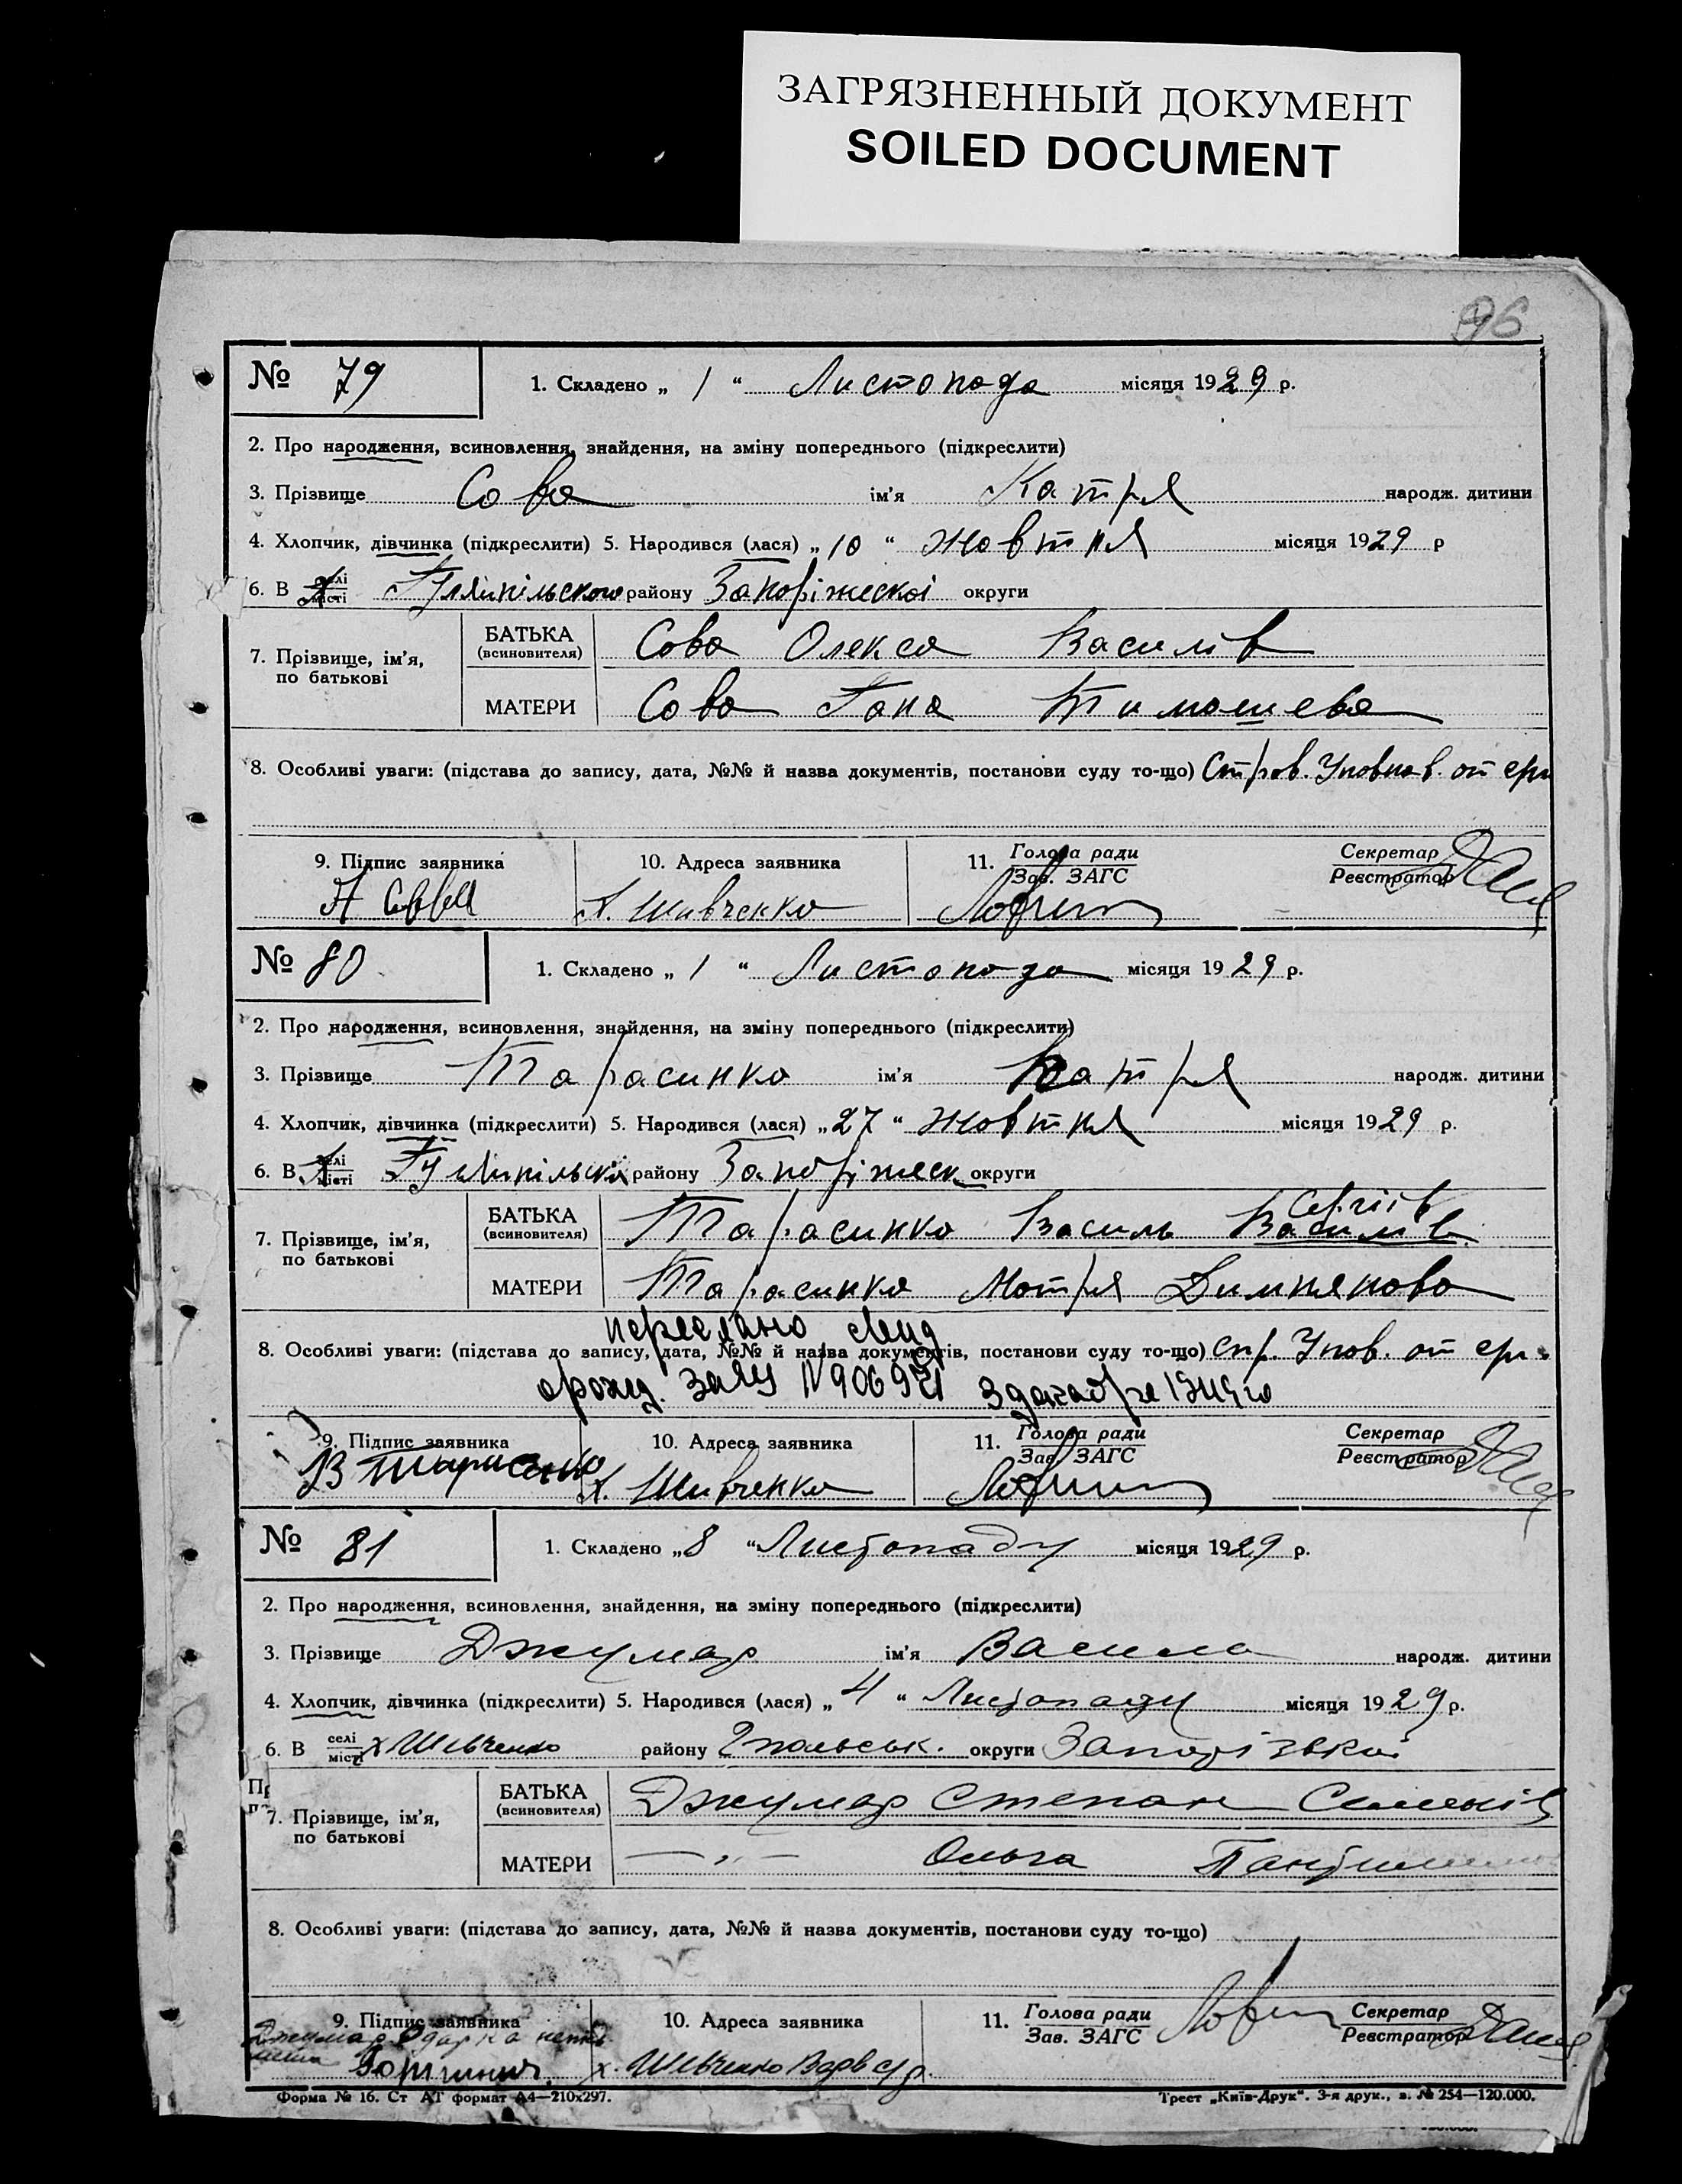 ЗАГРЯЗНЕННЫЙ ДОКУМЕНТ
SOILED DOCUMENT
96
№ 79 1. Складено „ 1 “ Листопада місяця 1929 р.
2. Про народження, всиновлення, знайдення, на зміну попереднього (підкреслити)
3. Прізвище Сова ім'я Катря народж. дитини
4. Хлопчик, дівчинка (підкреслити) 5. Народився (лася) „ 10 “ Жовтня місяця 1929 р
6. В селі місті району Запоріжской округи
7. Прізвище, ім'я, по батькові
БАТЬКА (всиновителя) Сова Олекса Василів
МАТЕРИ Сова Гана Тимошева
8. Особливі уваги: (підстава до запису, дата, №№ й назва документів, постанови суду то-що)
9. Підпис заявника 10. Адреса заявника 11. Голова ради Зав. ЗАГС Секретар Реєстратор
х. Шивченко
№ 80 1. Складено „ 1 “ Листопада місяця 1929 р.
2. Про народження, всиновлення, знайдення, на зміну попереднього (підкреслити)
3. Прізвище Тарасинко ім'я Катря народж. дитини
4. Хлопчик, дівчинка (підкреслити) 5. Народився (лася) „ 27 “ Жовтня місяця 1929 р.
6. В селі місті району Запоріжск округи
Сергіїв
7. Прізвище, ім'я, по батькові
БАТЬКА (всиновителя) Тарасинко Василь Василів
МАТЕРИ Тарасинко Мотря
переслано
8. Особливі уваги: (підстава до запису, дата, №№ й назва документів, постанови суду то-що)
о рожд. N 906921 3 декабря
9. Підпис заявника 10. Адреса заявника 11. Голова ради Зав. ЗАГС Секретар Реєстратор
В Тарасенко х. Шивченко
№ 81 1. Складено „ 8 “ Листопаду місяця 1929 р.
2. Про народження, всиновлення, знайдення, на зміну попереднього (підкреслити)
3. Прізвище Джумар ім'я народж. дитини
4. Хлопчик, дівчинка (підкреслити) 5. Народився (лася) „ 4 “ Листопаду місяця 1929 р.
6. В селі місті х Шевченко району Гпольськ. округи
7. Прізвище, ім'я, по батькові
БАТЬКА (всиновителя) Джумар Степан Семенів
МАТЕРИ — „ — Ольга
8. Особливі уваги: (підстава до запису, дата, №№ й назва документів, постанови суду то-що)
9. Підпис заявника 10. Адреса заявника 11. Голова ради Зав. ЗАГС Секретар Реєстратор
Джумар Одарка
х. Шевченко
Форма № 16. Ст АТ формат А4—210х297. Трест „Київ-Друк“. 3-я друк., з. № 254—120.000.